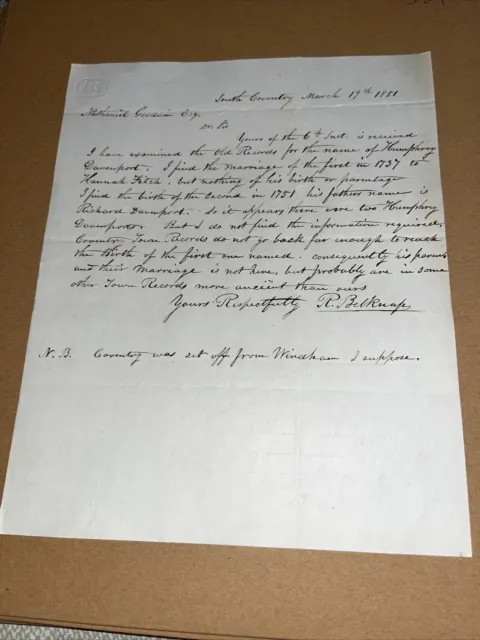 South Coventry March 19th 1851
Nathaniel Goodwin Esq.
Dr Sir
Yours of the 6th Inst. is received
I have examined the Old Records for the name of Humphrey
Davenport. I find the marriage of the first in 1737 to
Hannah Fitch. but nothing of his birth or parentage
I find the birth of the second in 1751 his fathers name is
Richard Davenport. So it appears there were two Humphry
Davenports. But I do not find the information required
Coventry Town Records do not go back far enough to reach
the Birth of the first one named. consequently his parents
and their marriage is not here, but probably are in some
other Town Records more ancient than ours
Yours Respectfully R. Belknap
N.B. Coventry was set off from Windham I suppose.